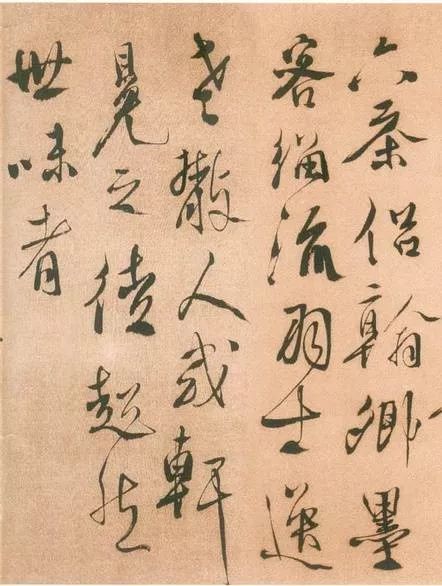 六茶侶翰卿墨
客緇流羽士逸
老散人或軒
冕之徒超然
世味者